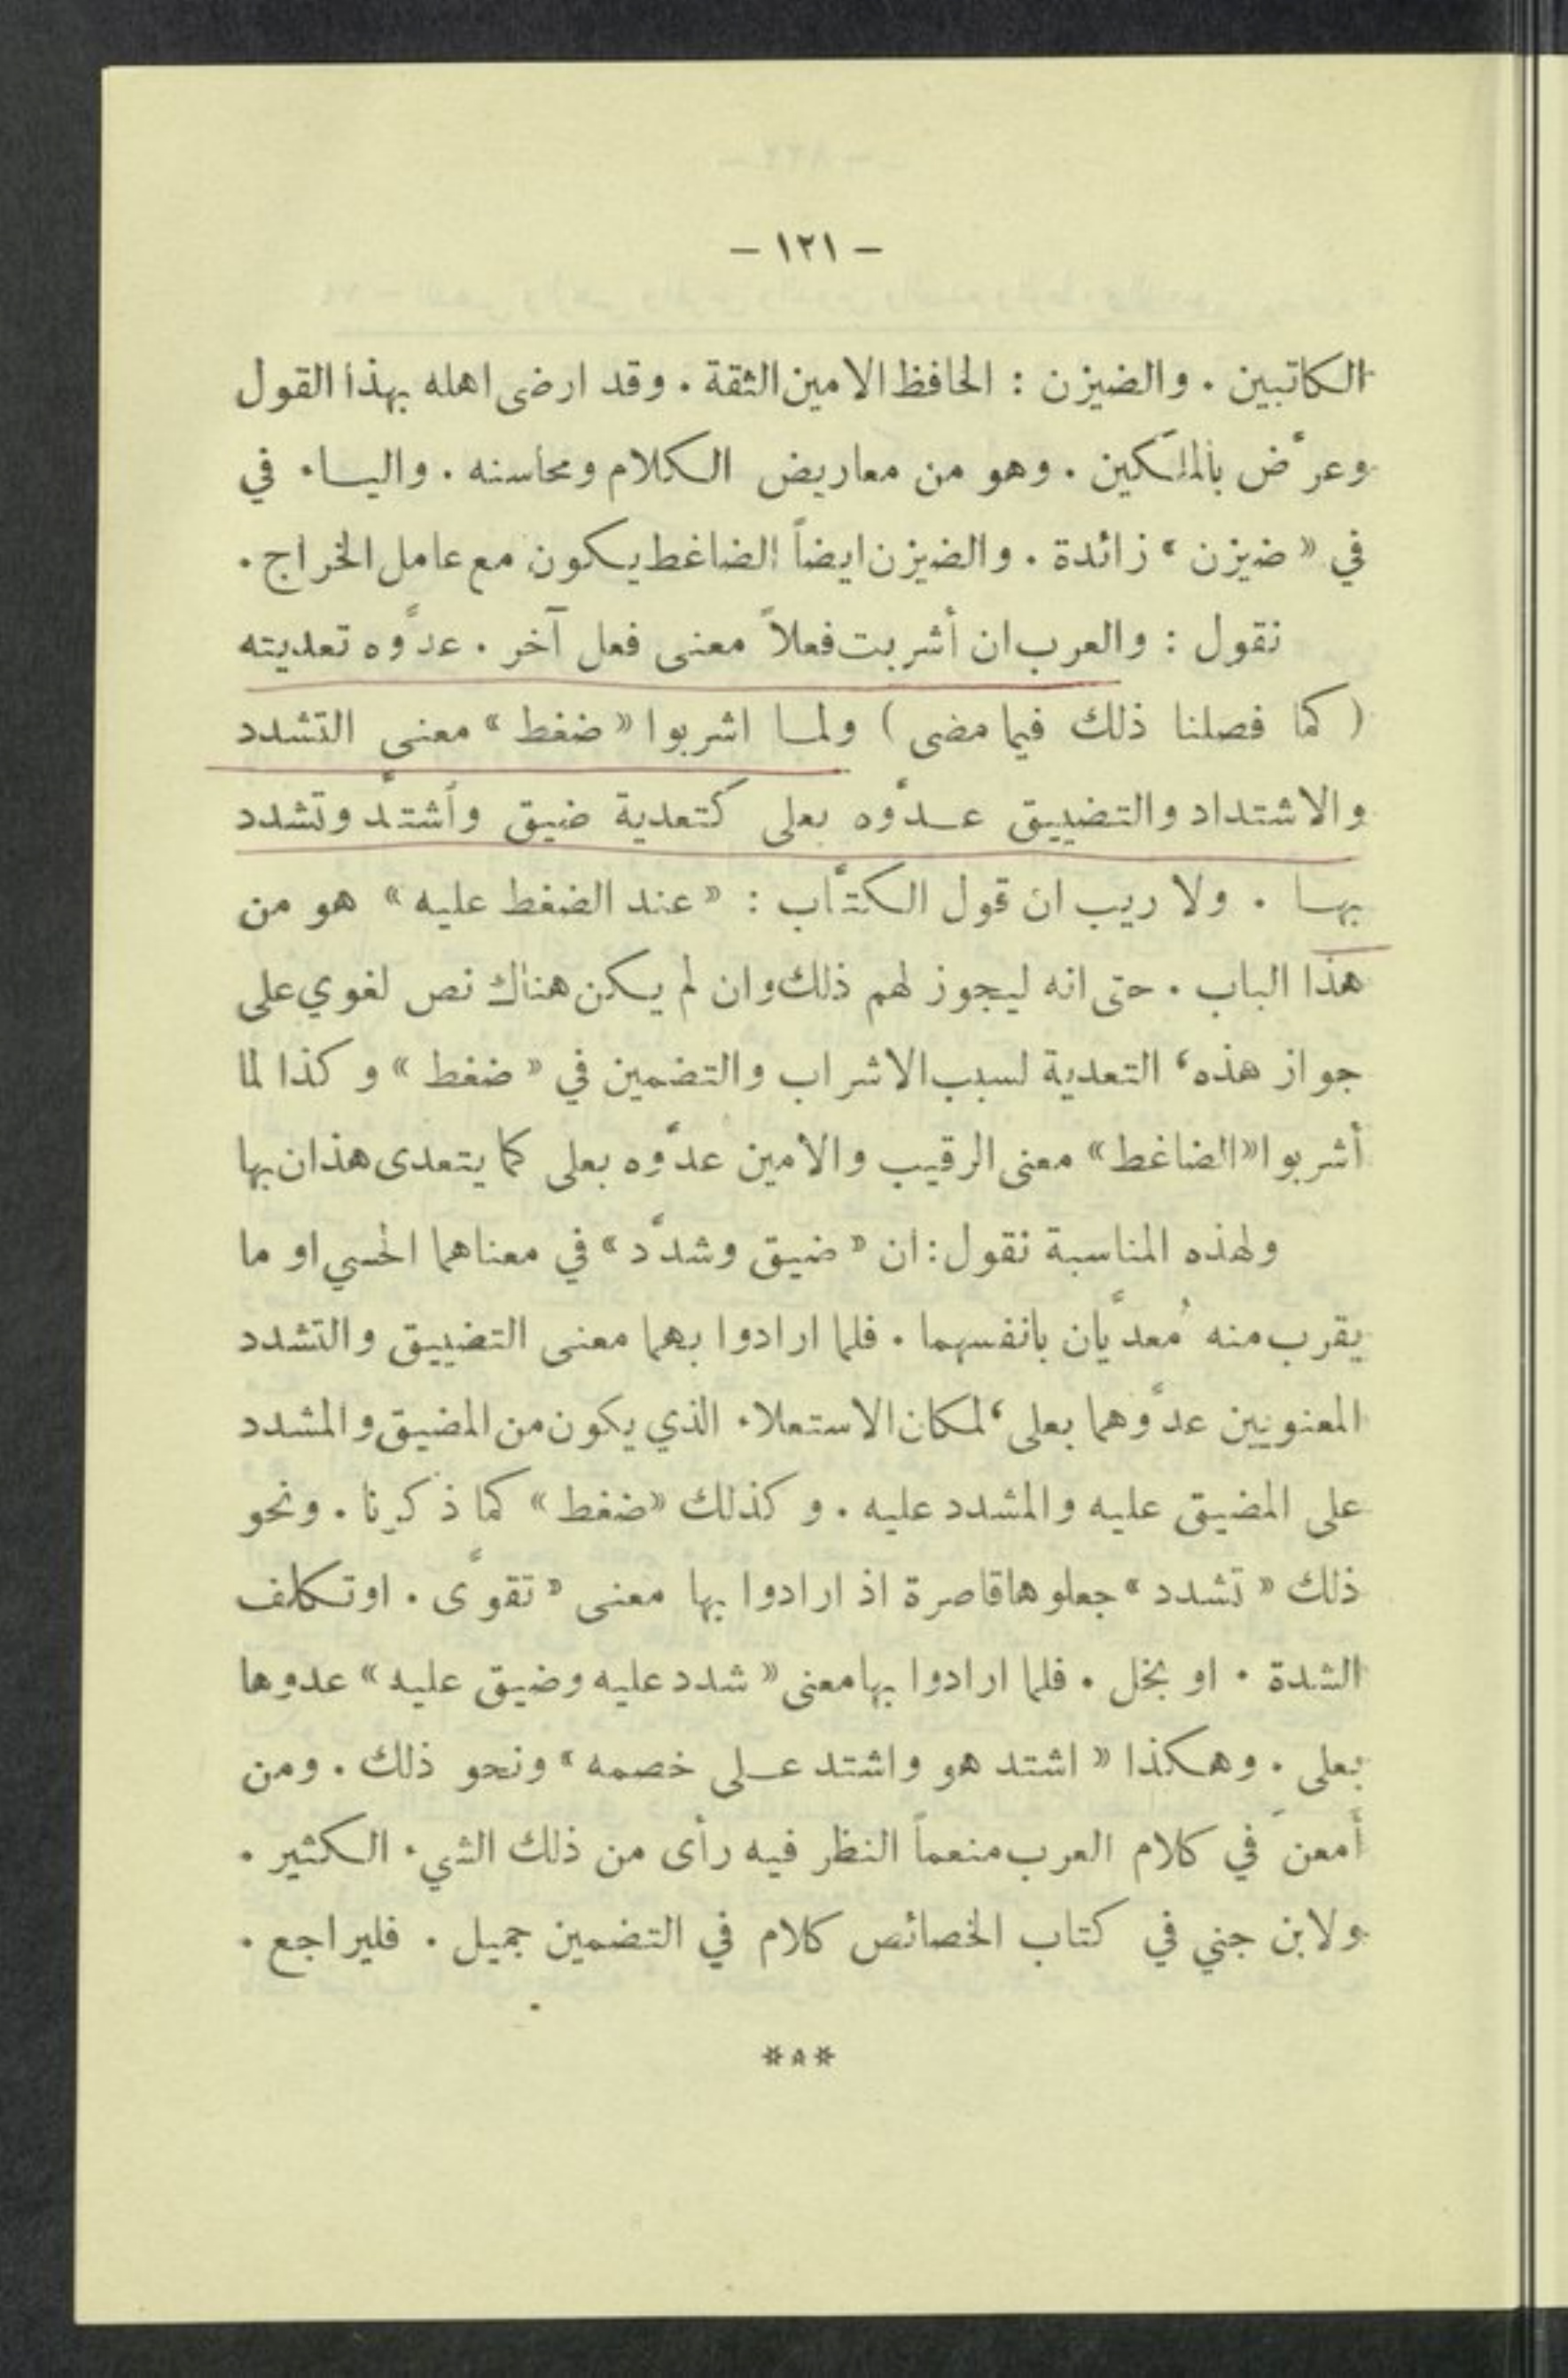 — ١٢١ —
الكاتبين . والضيزن : الحافظ الامين الثقة . وقد ارضى اهله بهذا القول
وعرَّض بالملَكين . وهو من معاريض الكلام ومحاسنه . والياء في
في « ضيزن » زائدة . والضيزن ايضاً الضاغط يكون مع عامل الخراج .
نقول : والعرب ان أشربت فعلاً معنى فعل آخر . عدَّوه تعديته
( كما فصلنا ذلك فيما مضى ) ولما اشربوا « ضغط » معنى التشدد
والاشتداد والتضييق عدَّوه بعلى كتعدية ضيق وأشتدَّ وتشدد
بها . ولا ريب ان قول الكتَّاب : « عند الضغط عليه » هو من
هذا الباب . حتى انه ليجوز لهم ذلك وان لم يكن هناك نص لغوي على
جواز هذه، التعدية لسبب الاشراب والتضمين في « ضغط » وكذا لما
أشربوا «الضاغط» معنى الرقيب والامين عدَّوه بعلى كما يتعدى هذان بها
ولهذه المناسبة نقول : ان « ضيق وشدَّد » في معناهما الحسي او ما
يقرب منه مُعدَّيان بانفسهما . فلما ارادوا بهما معنى التضييق والتشدد
المعنويين عدَّوهما بعلى، لمكان الاستعلاء الذي يكون من المضيق والمشدد
على المضيق عليه والمشدد عليه . وكذلك «ضغط» كما ذكرنا . ونحو
ذلك « تشدد » جعلوها قاصرة اذ ارادوا بها معنى « تقوَّى . او تكلف
الشدة . او بخل . فلما ارادوا بها معنى « شدد عليه وضيق عليه » عدوها
بعلى . وهكذا « اشتد هو واشتد على خصمه » ونحو ذلك . ومن
أمعنَ في كلام العرب منعماً النظر فيه رأى من ذلك الشيء الكثير .
ولابن جني في كتاب الخصائص كلام في التضمين جميل . فليراجع .
***